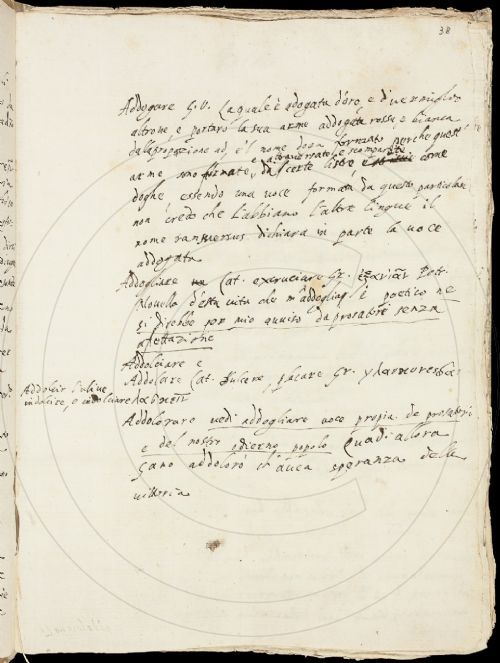 38
Addogare G.V. La quale è adogata d'oro, e di vermiglio
altrove, e portarò la sua arme addogata rossa e bianca
dalla propozione ad, e 'l nome doga formato perche quest'
attraversate, e scompartite
arme sono formate, da certe liste come
doghe essendo una voce formata da questo particolare
non credo che l'abbiano l'altre lingue il
nome transversus dichiara in parte la voce
addogata
Addogliare Lat. excruciare Gr. Petr.
Novello d'esta vita che m'addoglia è poetico ne
si direbbe per mio avviso da prosatori senza
afettazione
Addolciare e
Addolcire Lat. Dulcere, placare Gr.
Addolcir
indolcire, e indolciare
Addolorare vedi addogliare voce propia de prosatori
e del nostro odierno popolo Quadi allora
Gano addolorò ch'avea speranza della
vittoria